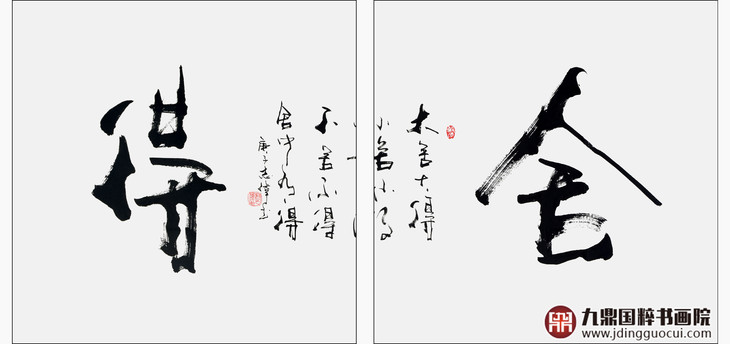 舍
大舍大得
小舍小得
不舍不得
舍中有得
庚子志偉书
得
九鼎国粹书画院
www.jdingguocui.com